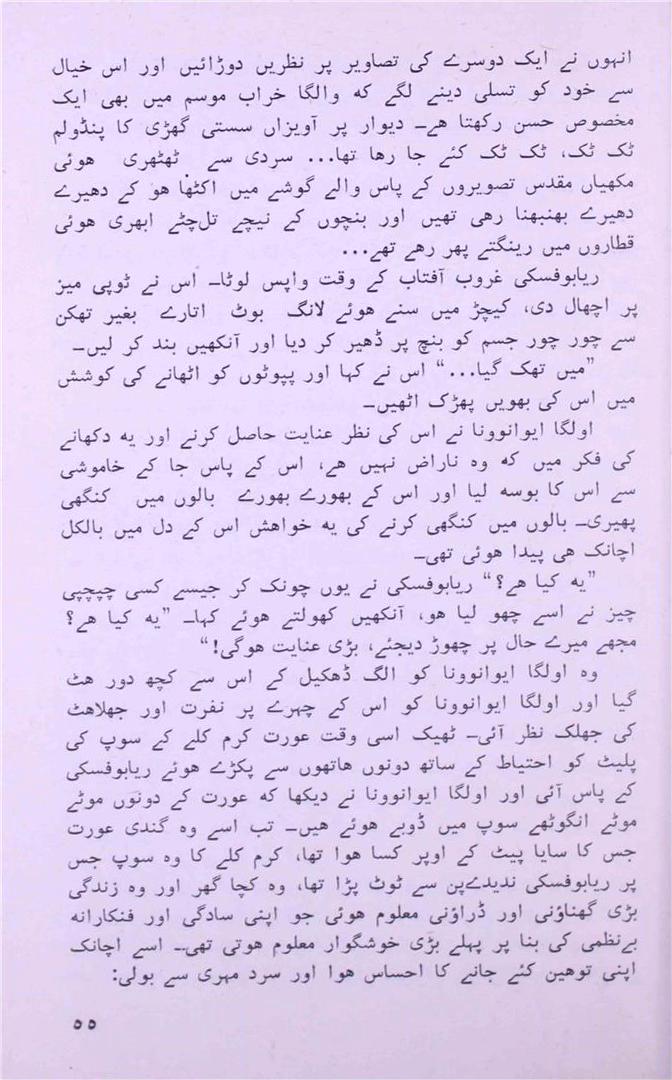 انہوں نے ایک دوسرے کی تصاویر پر نظریں دوڑائیں اور اس خیال
سے خود کو تسلی دینے لگے کہ والگا خراب موسم میں بھی ایک
مخصوص حسن رکھتا ھے۔ دیوار پر آویزاں سستی گھڑی کا پنڈولم
ٹک ٹک، ٹک ٹک کئے جا رھا تھا... سردی سے ٹھٹھری ھوئی
مکھیاں مقدس تصویروں کے پاس والے گوشے میں اکٹھا ھو کے دھیرے
دھیرے بھنبھنا رھی تھیں اور بنچوں کے نیچے تلچٹے ابھری ھوئی
قطاروں میں رینگتے پھر رھے تھے...
ریابوفسکی غروب آفتاب کے وقت واپس لوٹا۔ اس نے ٹوپی میز
پر اچھال دی، کیچڑ میں سنے ھوئے لانگ بوٹ اتارے بغیر تھکن
سے چور چور جسم کو بنچ پر ڈھیر کر دیا اور آنکھیں بند کر لیں۔
”میں تھک گیا...“ اس نے کہا اور پپوٹوں کو اٹھانے کی کوشش
میں اس کی بھویں پھڑک اٹھیں۔
اولگا ایوانوونا نے اس کی نظر عنایت حاصل کرنے اور یہ دکھانے
کی فکر میں کہ وہ ناراض نہیں ھے، اس کے پاس جا کے خاموشی
سے اس کا بوسہ لیا اور اس کے بھورے بھورے بالوں میں کنگھی
پھیری۔ بالوں میں کنگھی کرنے کی یہ خواھش اس کے دل میں بالکل
اچانک ھی پیدا ھوئی تھی۔
”یہ کیا ھے؟“ ریابوفسکی نے یوں چونک کر جیسے کسی چپچپی
چیز نے اسے چھو لیا ھو، آنکھیں کھولتے ھوئے کہا۔ ”یہ کیا ھے؟
مجھے میرے حال پر چھوڑ دیجئے، بڑی عنایت ھوگی!“
وہ اولگا ایوانوونا کو الگ ڈھکیل کے اس سے کچھ دور ھٹ
گیا اور اولگا ایوانوونا کو اس کے چہرے پر نفرت اور جھلاھٹ
کی جھلک نظر آئی۔ ٹھیک اسی وقت عورت کرم کلے کے سوپ کی
پلیٹ کو احتیاط کے ساتھ دونوں ھاتھوں سے پکڑے ھوئے ریابوفسکی
کے پاس آئی اور اولگا ایوانوونا نے دیکھا کہ عورت کے دونوں موٹے
موٹے انگوٹھے سوپ میں ڈوبے ھوئے ھیں۔ تب اسے وہ گندی عورت
جس کا سایا پیٹ کے اوپر کسا ھوا تھا، کرم کلے کا وہ سوپ جس
پر ریابوفسکی ندیدےپن سے ٹوٹ پڑا تھا، وہ کچا گھر اور وہ زندگی
بڑی گھناؤنی اور ڈراؤنی معلوم ھوئی جو اپنی سادگی اور فنکارانہ
بےنظمی کی بنا پر پہلے بڑی خوشگوار معلوم ھوتی تھی۔ اسے اچانک
اپنی توھین کئے جانے کا احساس ھوا اور سرد مہری سے بولی:
۵۵